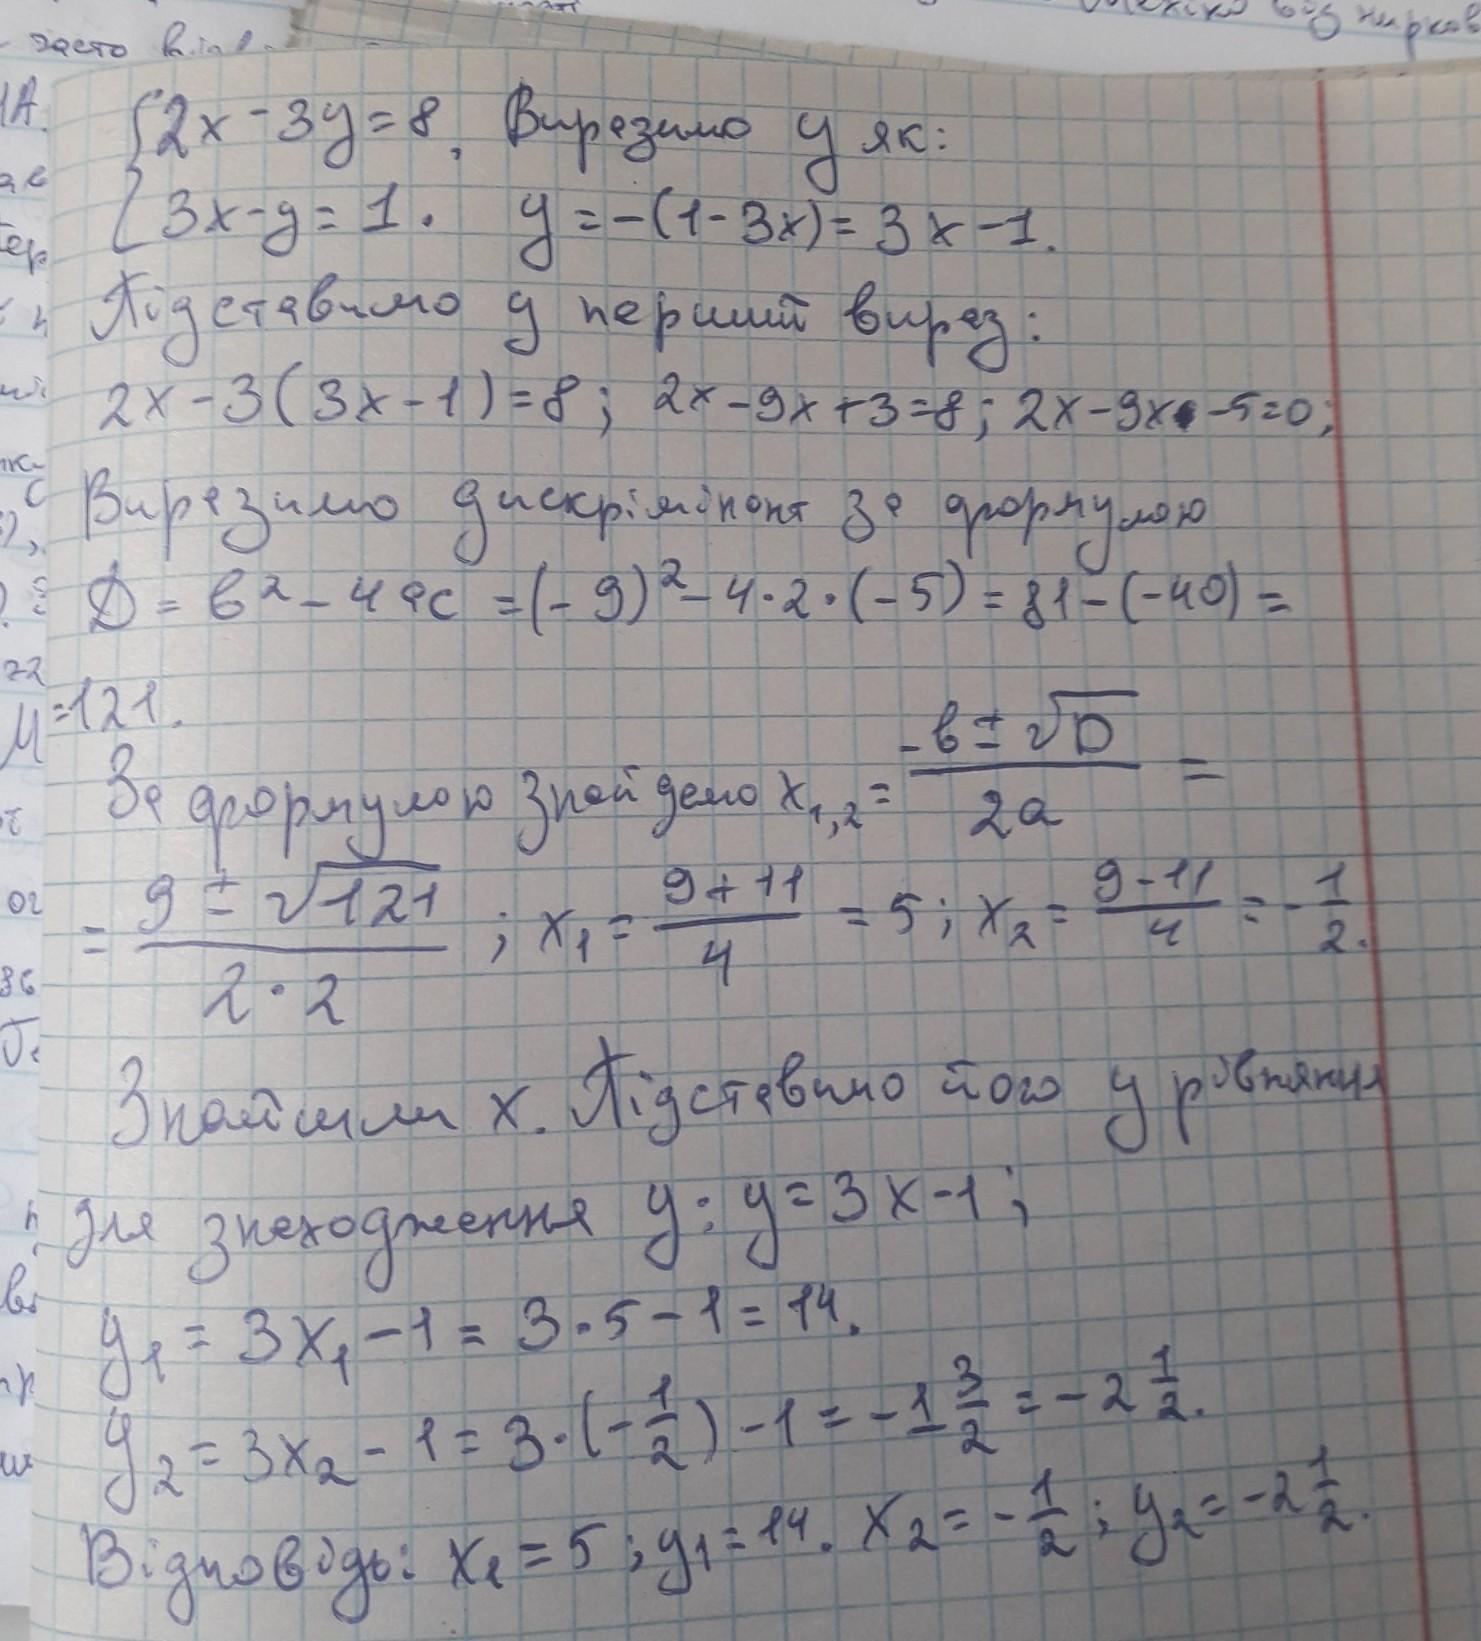 часто
{2x - 3y = 8, Виразимо y як:
{3x - y = 1. y = -(1 - 3x) = 3x - 1.
Підставимо у перший вираз:
2x - 3(3x - 1) = 8; 2x - 9x + 3 = 8; 2x - 9x - 5 = 0;
Виразимо дискрімінант за формулою
D = b² - 4ac = (-9)² - 4·2·(-5) = 81 - (-40) =
= 121.
За формулою знайдемо x₁,₂ = (-b ± √D)/(2a) =
= (9 ± √121)/(2·2); x₁ = (9 + 11)/4 = 5; x₂ = (9 - 11)/4 = -1/2.
Знайшли x. Підставимо його у рівняння
для знаходження y: y = 3x - 1;
y₁ = 3x₁ - 1 = 3·5 - 1 = 14.
y₂ = 3x₂ - 1 = 3·(-1/2) - 1 = -1 3/2 = -2 1/2.
Відповідь: x₁ = 5; y₁ = 14. x₂ = -1/2; y₂ = -2 1/2.